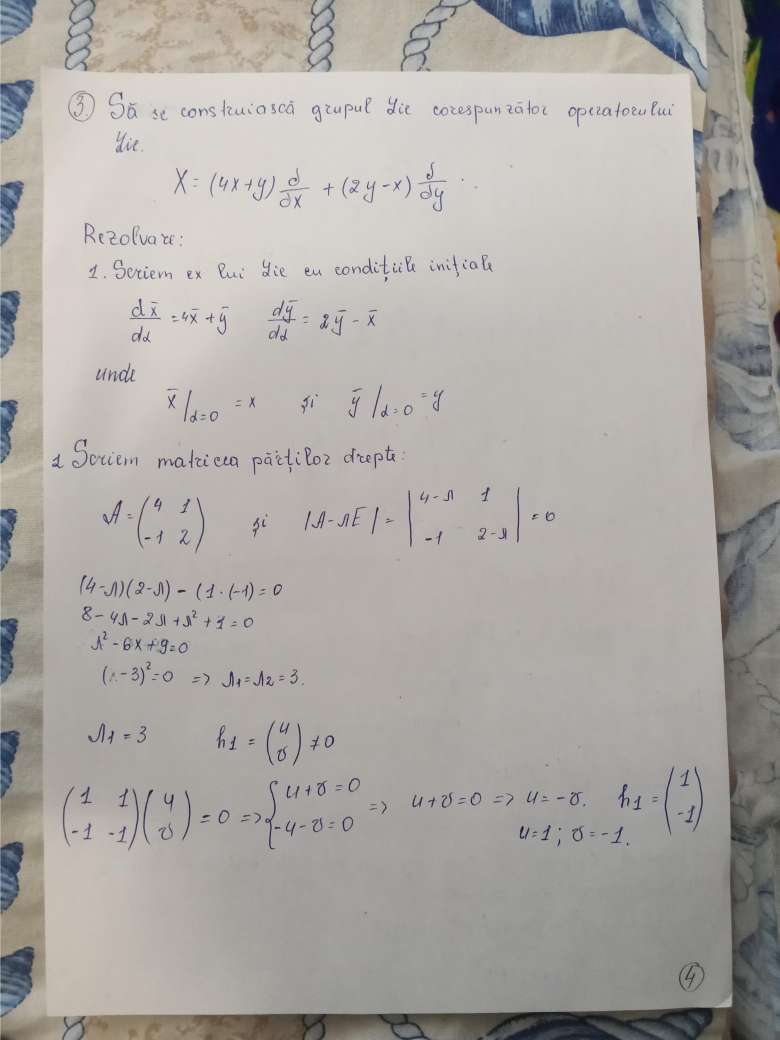 ③ Să se construiască grupul Lie corespunzător operatorului
Lie.
X = (4x+y) ∂/∂x + (2y-x) ∂/∂y .
Rezolvare:
1. Scriem ex lui Lie cu condițiile inițiale
dx̄/dα = 4x̄ + ȳ   dȳ/dα = 2ȳ - x̄
unde
x̄|α=0 = x   și   ȳ|α=0 = y
2 Scriem matricea părților drepte:
A = (4 1; -1 2)   și   |A-λE| = |4-λ 1; -1 2-λ| = 0
(4-λ)(2-λ) - (1·(-1) = 0
8 - 4λ - 2λ + λ² + 1 = 0
λ² - 6x + 9 = 0
(λ-3)² = 0 => λ1 = λ2 = 3.
λ1 = 3   h1 = (u; v) ≠ 0
(1 1; -1 -1)(u; v) = 0 => {u+v=0; -u-v=0 => u+v=0 => u=-v. h1 = (1; -1)
u=1; v=-1.
④